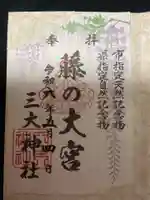 奉拝
市指定天然記念物
県指定自然記念物
藤の大宮
令和八年五月四日
三大神社